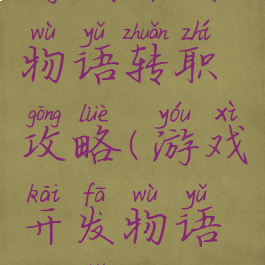 wù yǔ zhuǎn zhí
物语转职
gōng lüè yóu xì
攻略(游戏
kāi fā wù yǔ
开发物语